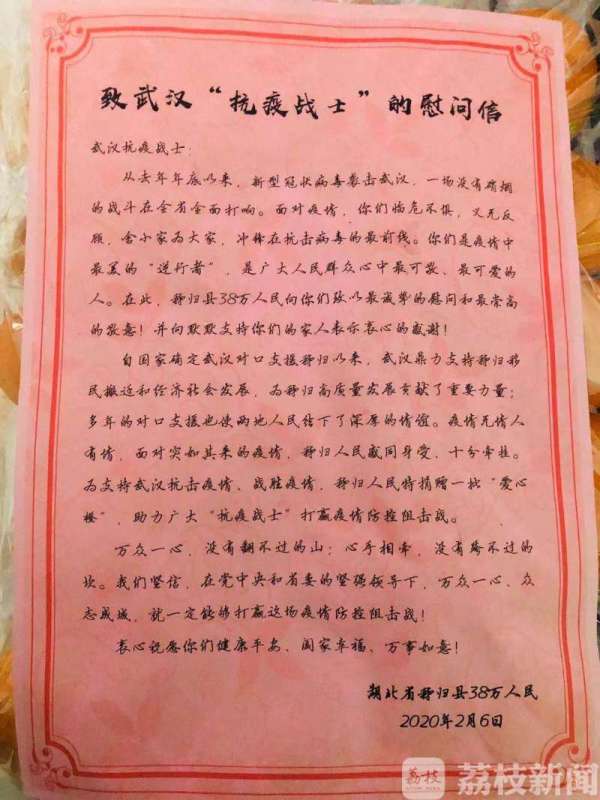 致武汉“抗疫战士”的慰问信
武汉抗疫战士:
从去年年底以来，新型冠状病毒袭击武汉，一场没有硝烟
的战斗在全省全面打响。面对疫情，你们临危不惧，义无反
顾，舍小家为大家，冲锋在抗击病毒的最前线。你们是疫情中
最美的“逆行者”，是广大人民群众心中最可敬、最可爱的
人。在此，秭归县38万人民向你们致以最诚挚的慰问和最崇高
的敬意！并向默默支持你们的家人表示衷心的感谢！
自国家确定武汉对口支援秭归以来，武汉鼎力支持秭归移
民搬迁和经济社会发展，为秭归高质量发展贡献了重要力量；
多年的对口支援也使两地人民结下了深厚的情谊。疫情无情人
有情，面对突如其来的疫情，秭归人民感同身受，十分牵挂。
为支持武汉抗击疫情、战胜疫情，秭归人民特捐赠一批“爱心
橙”，助力广大“抗疫战士”打赢疫情防控阻击战。
万众一心，没有翻不过的山；心手相牵，没有跨不过的
坎。我们坚信，在党中央和省委的坚强领导下，万众一心、众
志成城，就一定能够打赢这场疫情防控阻击战！
衷心祝愿你们健康平安、阖家幸福、万事如意！
湖北省秭归县38万人民
2020年2月6日
荔枝 荔枝新闻